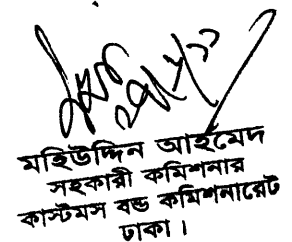 মহিউদ্দিন আহমেদ
সহকারী কমিশনার
কাস্টমস বন্ড কমিশনারেট
ঢাকা।